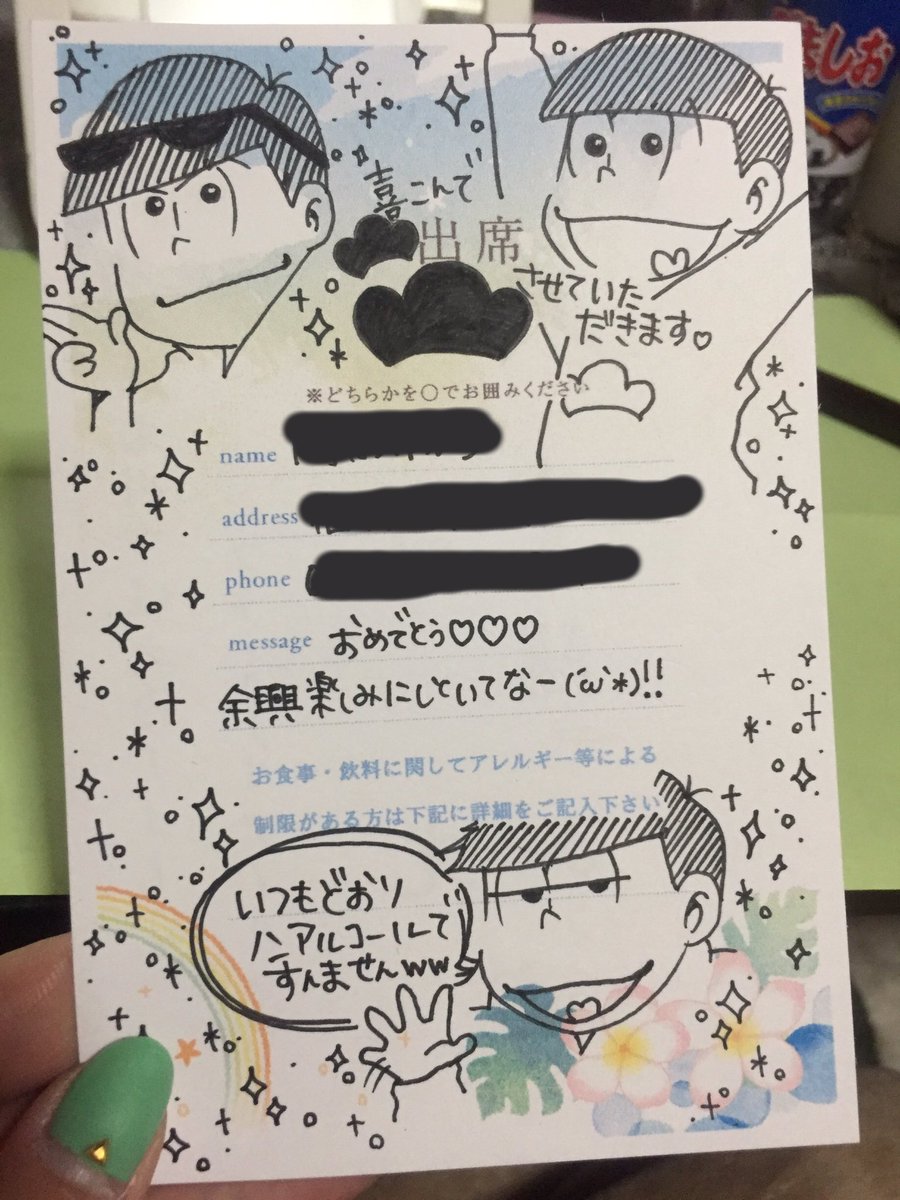 喜こんで
出席
させていた
だきます♡
※どちらかを○でお囲みください
name
address
phone
message おめでとう♡♡♡
余興楽しみにしといてなー(´ω`*)!!
お食事・飲料に関してアレルギー等による
制限がある方は下記に詳細をご記入下さい
いつもどおり
ノンアルコールで
すんませんww